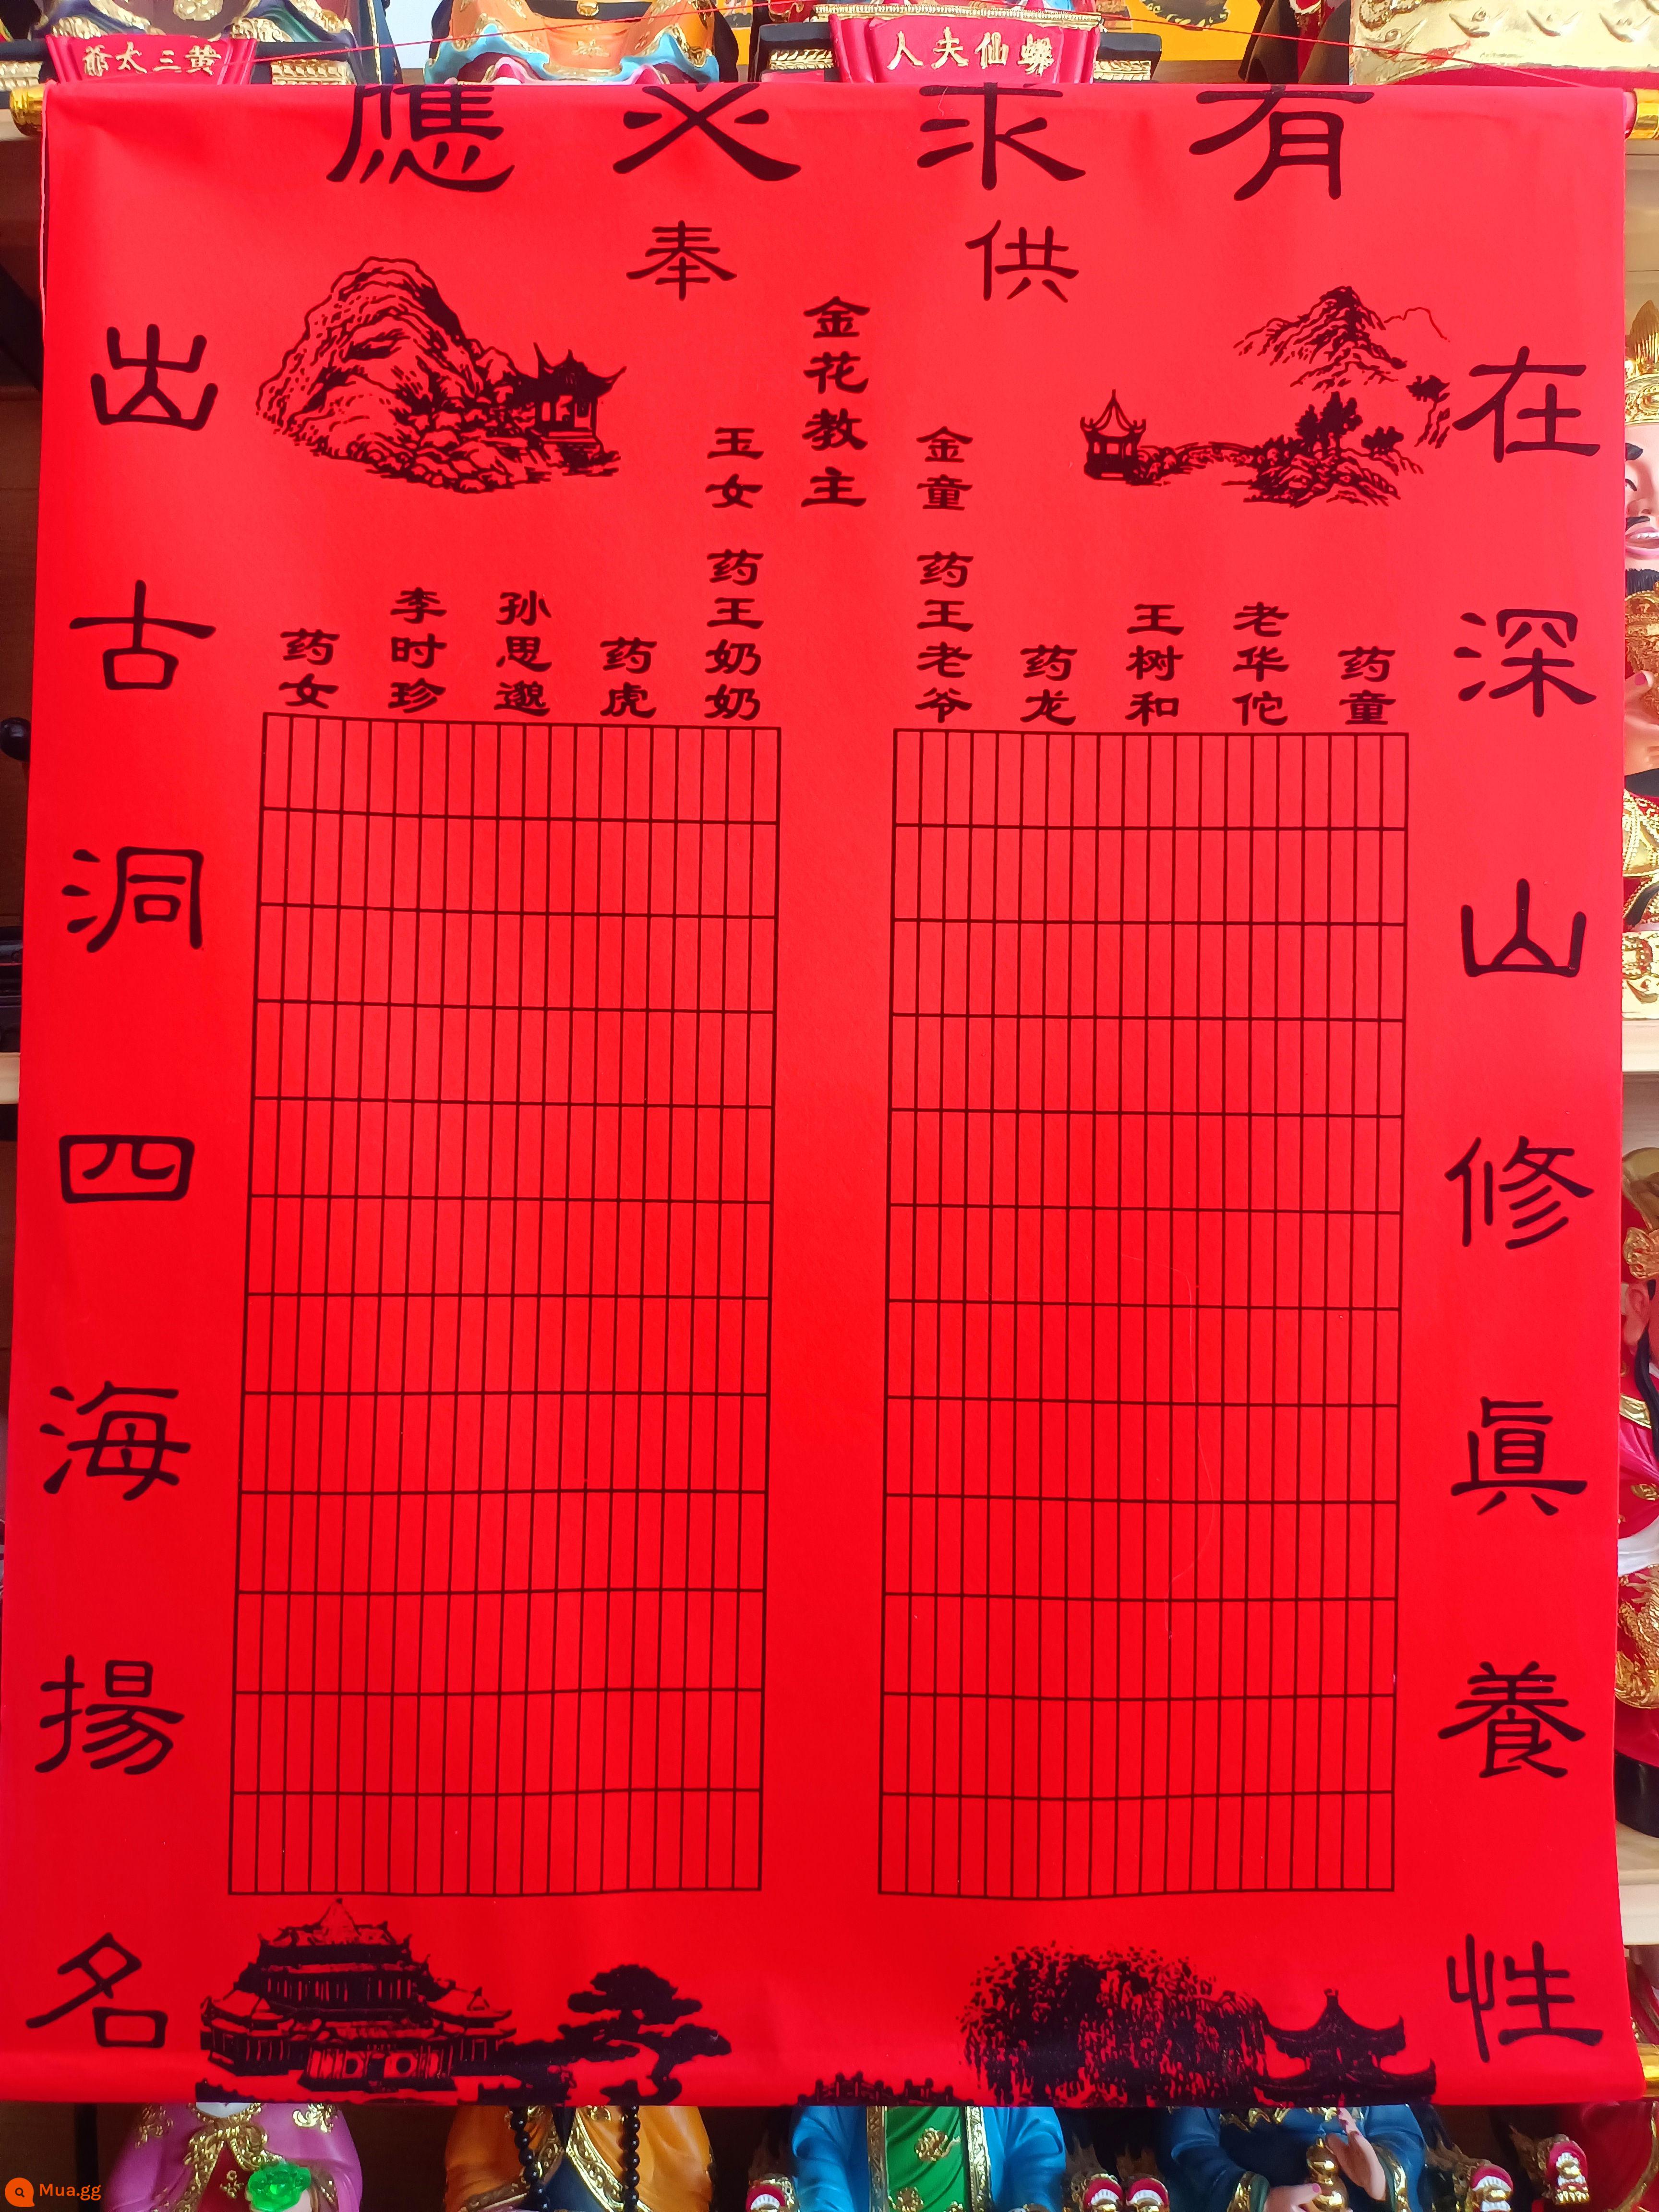 黄三太爺
蟒仙夫人
有求必應
供奉
在深山修眞養性
出古洞四海揚名
金花教主
金童
玉女
药童
老华佗
王树和
药龙
药王老爷
药王奶奶
药虎
孙思邈
李时珍
药女
Mua.gg